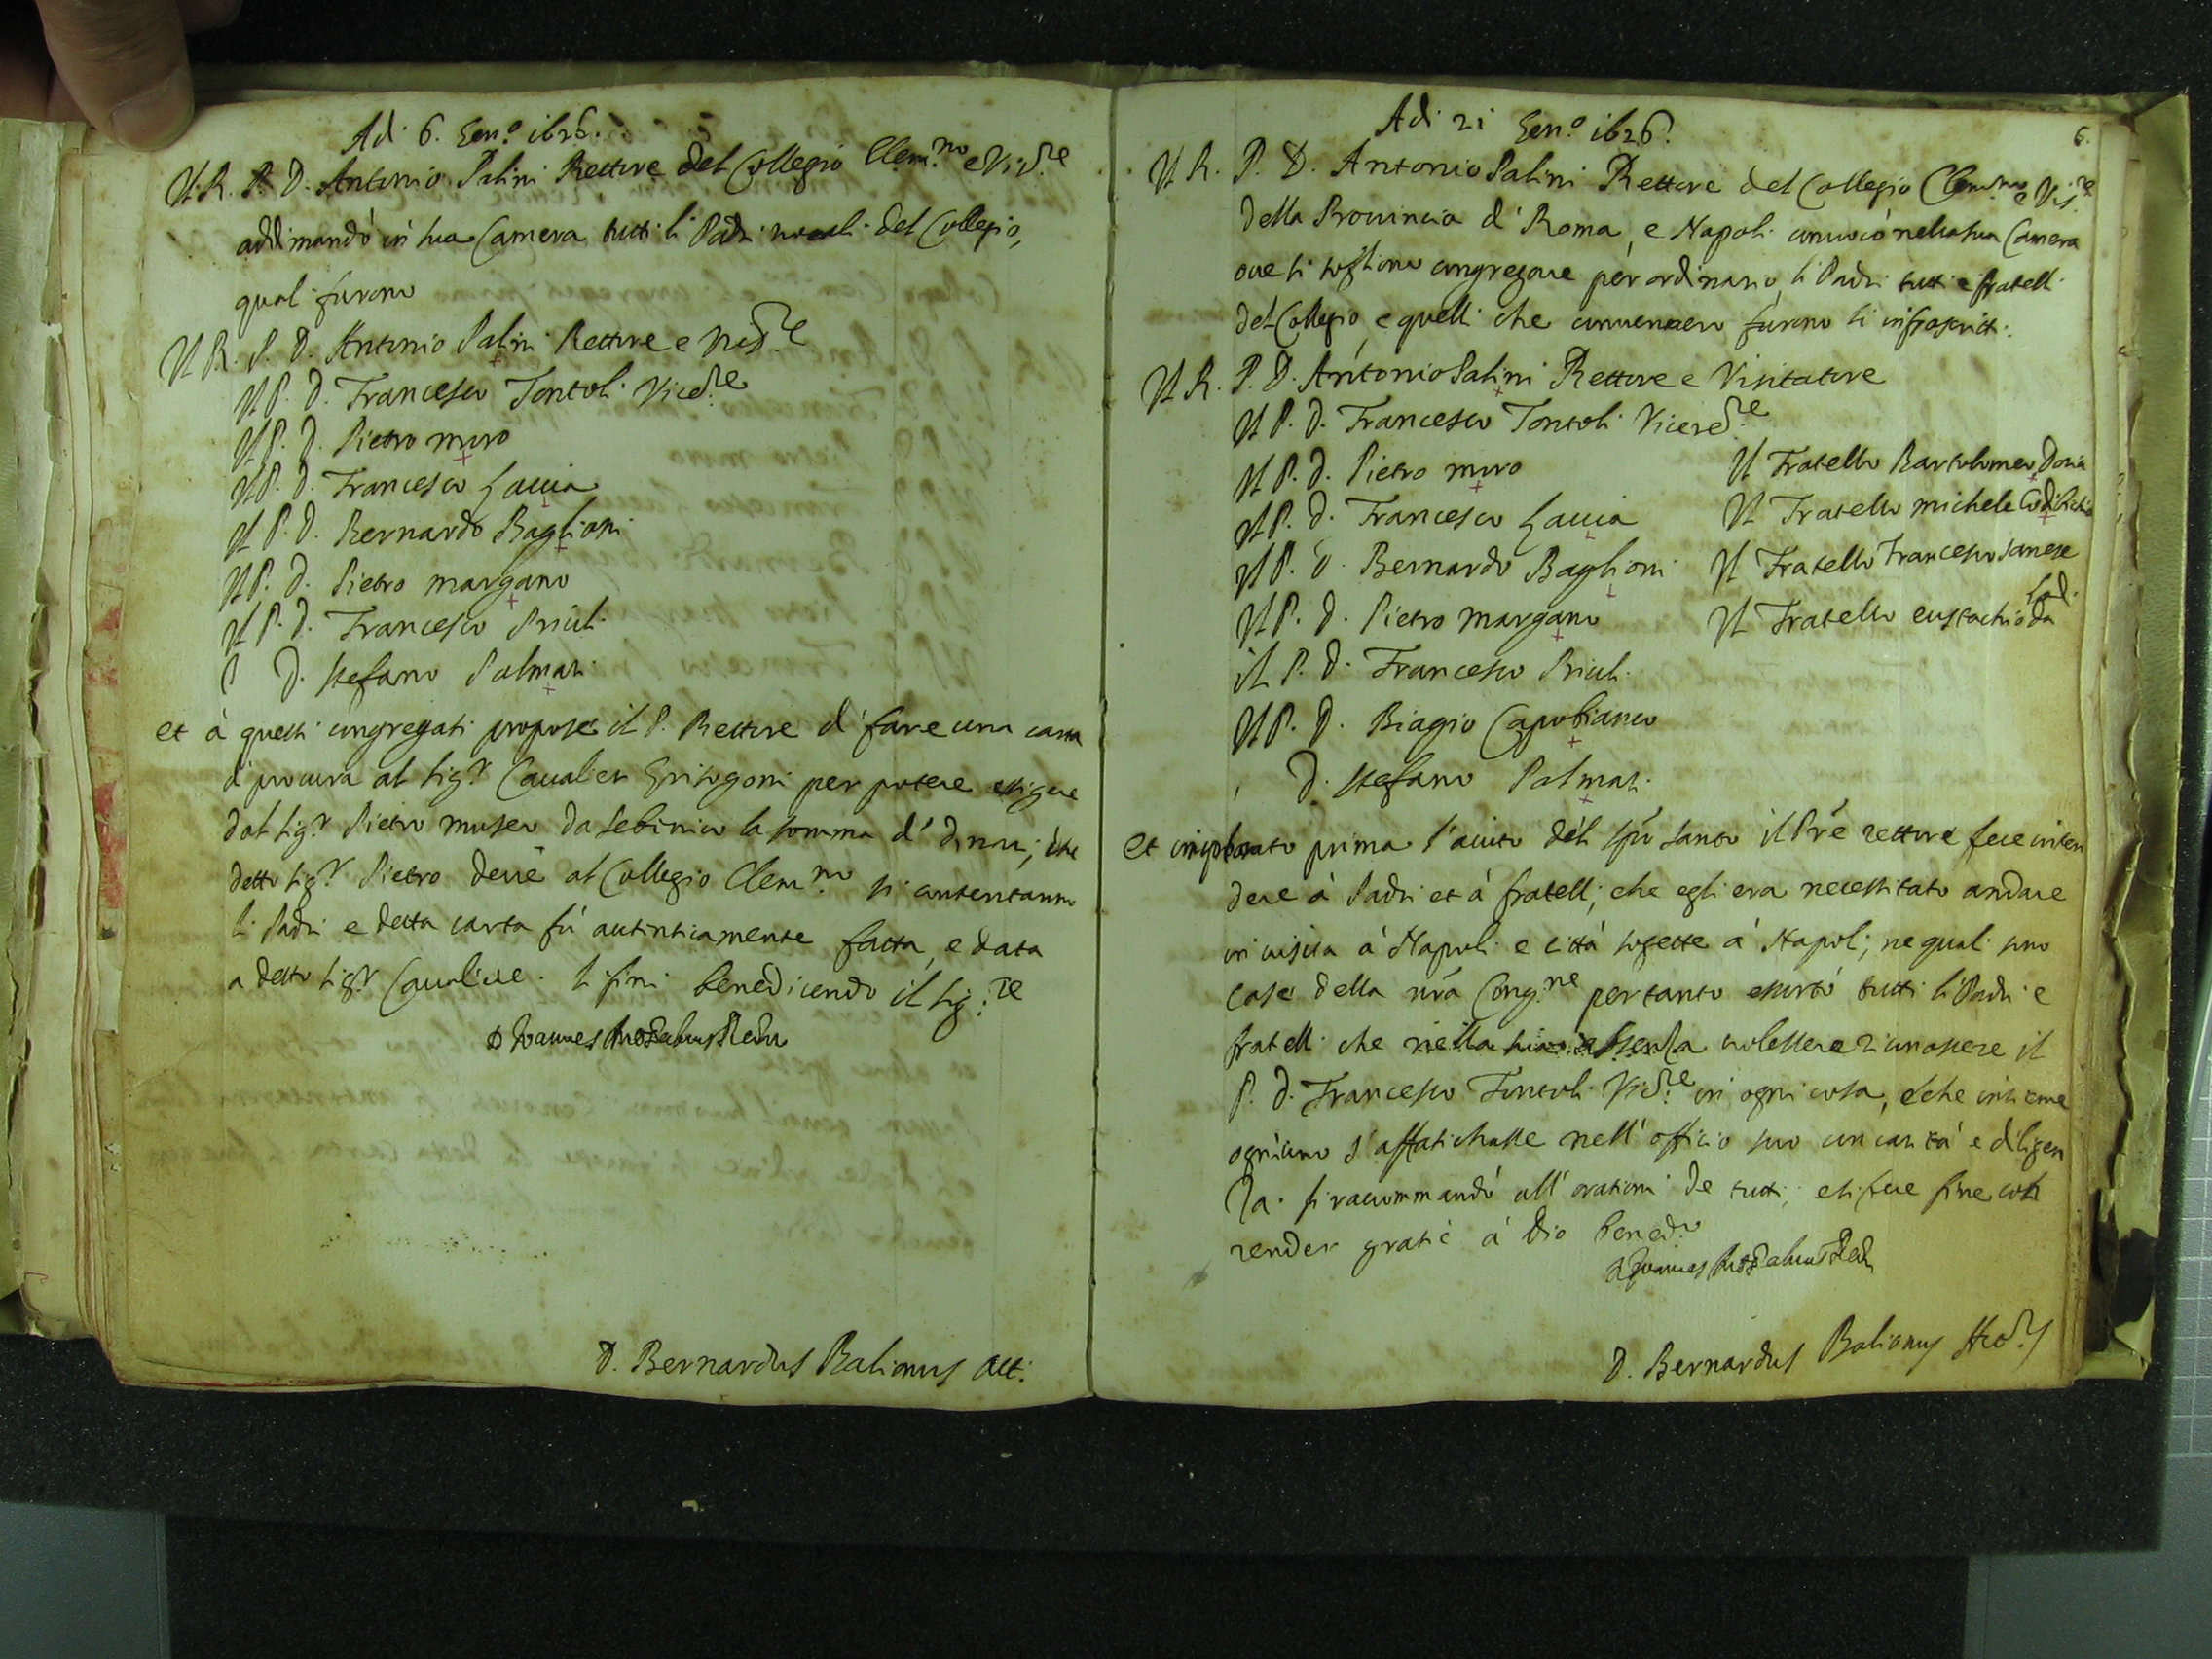 Adi 6. Gen.o 1626.
Il R. P. D. Antonio Palini Rettore del Collegio Clem.no e Vis.re
addimandò in sua Camera tutti li Padri vocali del Collegio,
quali furono
Il R. P. D. Antonio Palini Rettore e Vis.re
Il P. D. Francesco Tontoli Vice.re
Il P. D. Pietro moro
Il P. D. Francesco
Il P. D. Bernardo Baglioni
Il P. D. Pietro margano
Il P. D. Francesco Priuli
P D. stefano Palmari
et à questi congregati propose il P. Rettore di fare una carta
di procura al sig.r Cavalier Grisogoni per potere essigere
dal sig.r Pietro museo da sebinico la somma di dinari, che
detto sig.r Pietro deve al Collegio Clem.no si contentanno
li Padri e detta carta fù autinticamente fatta, e data
a detto sig.r Cavaliere. si finì benedicendo il sig.re
D. Bernardus Balionus Att:
6.
Adi 21 Gen.o 1626.
Il R. P. D. Antonio Palini Rettore del Collegio Clem.no e Vis.re
della Provincia di Roma, e Napoli convocò nella sua Camera
ove si sogliono congregare per ordinario, li Padri tutti e fratelli
del Collegio, e quelli che convennero furono li infrascritti:
Il R. P. D. Antonio Palini Rettore e Visitatore
Il P. D. Francesco Tontoli Vicere.re
Il P. D. Pietro moro
Il P. D. Francesco
Il P. D. Bernardo Baglioni
Il P. D. Pietro margano
il P. D. Francesco Priuli
Il P. D. Biagio Capobianco
D. stefano Palmari
Il Fratello Bartolomeo Doria
Il Fratello michele
Il Fratello Francesco sanese
Il Fratello eustachio da
Lodi
et implorato prima l'aiuto del spū santo il Prē rettore fece inten
dere à Padri et à fratelli, che egli era necessitato andare
in visita à Napoli e città sogette à Napoli, ne quali sono
Case della nrā Cong.ne pertanto essortò tutti li Padri e
fratelli che nella sua absenza volessero riconoscere il
P. D. Francesco Tontoli Vic.re in ogni cosa, e che insieme
ogniuno s'affatichasse nell'officio suo con carità e diligen
za. si raccommandò all'orationi de tutti, et si fece fine con
render gratie à Dio bened.o
D. Bernardus Balionus